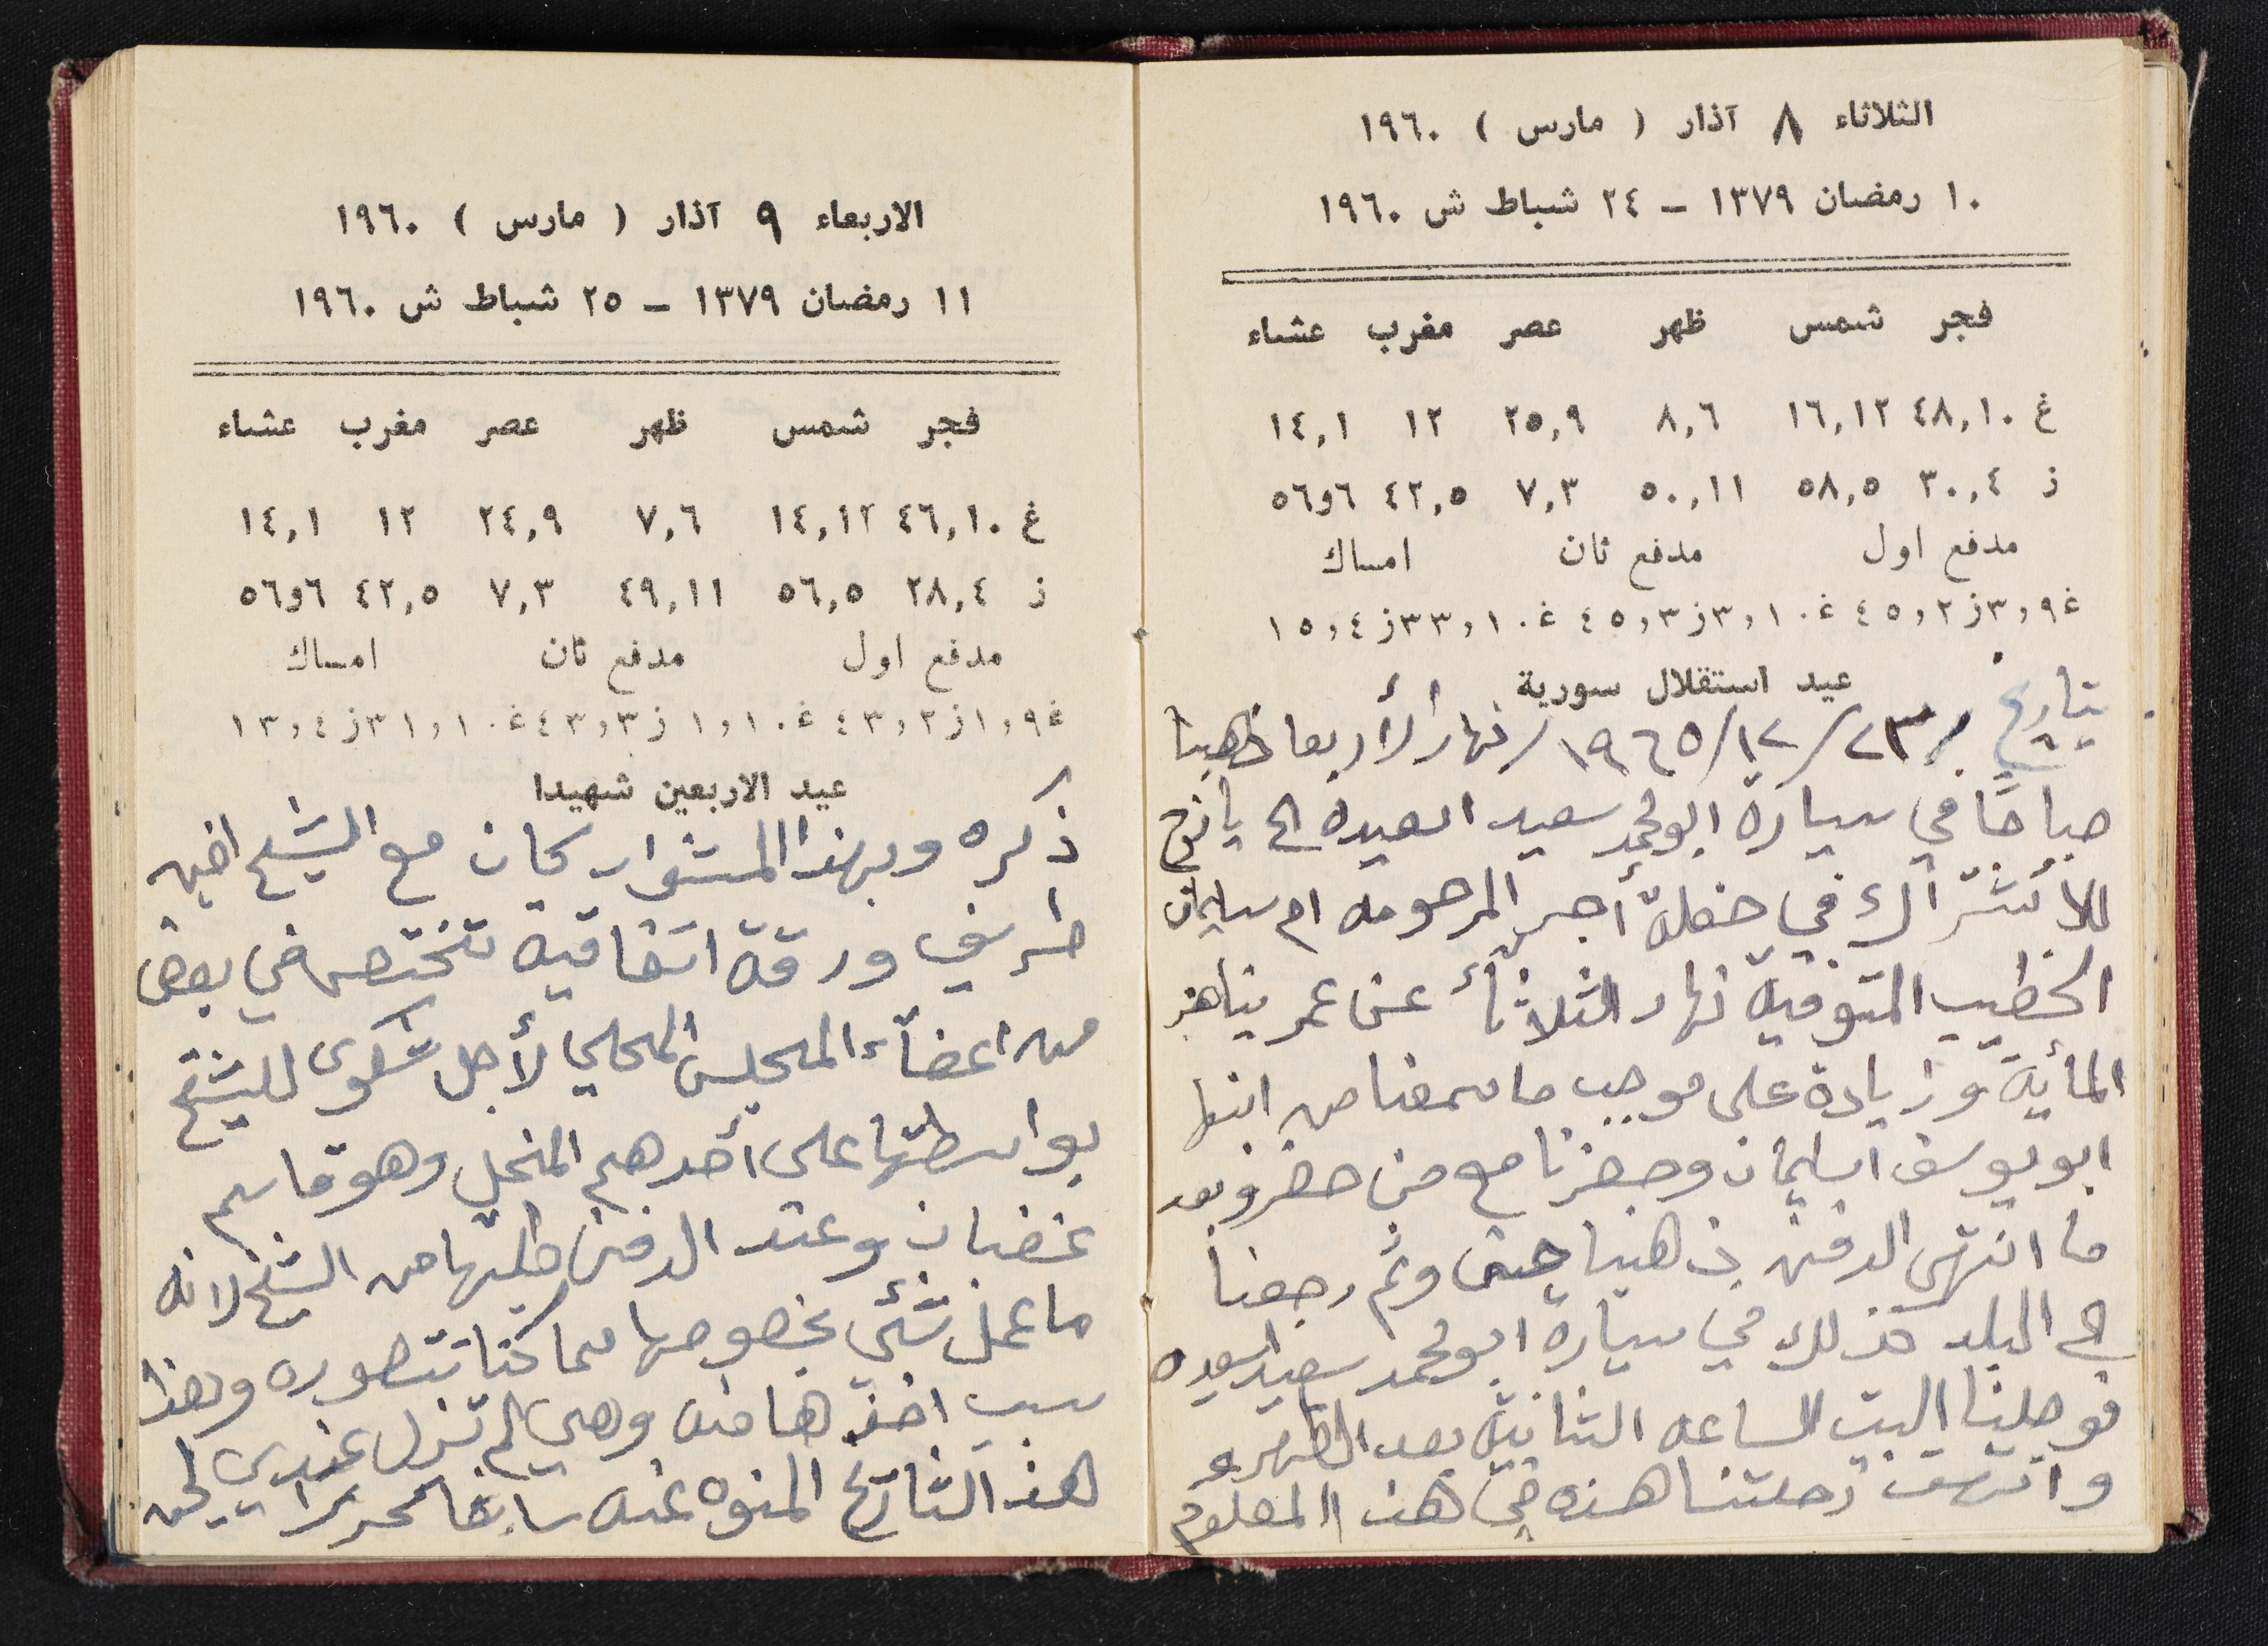 الثلاثاء ٨ آذار ( مارس ) ١٩٦٠
١٠ رمضان ١٣٧٩ ـ ٢٤ شباط ش ١٩٦٠
فجر شمس ظهر عصر مغرب عشاء
غ ٤٨,١٠ ١٦,١٢ ٨,٦ ٢٥,٩ ١٢ ١٤,١
ز ٣٠,٤ ٥٨,٥ ٥٠,١١ ٧,٣ ٤٢,٥ ٥٦و٦
مدفع اول مدفع ثان امساك
غ٣,٩ز٤٥,٢ غ٣,١٠ز٤٥,٣ غ٣٣,١٠ز١٥,٤
عيد استقلال سورية
بتاريخ ٢٣/١٢/١٩٦٥/ نهار الأربعا ذهبنا
صباحًا في سيارة ابو محمد سعيد العبده الى يانوح
للأشتراك في حفلة أجر المرحومه ام سليمان
الخطيب المتوفية نهار الثلاثأ عن عمر يناهز
المأية وزيادة على موجب ما سمعنا من ابنها
ابو يوسف اسليمان وحضرنا مع من حضر وبعد
ما انتهى الدفن ذهبنا حتى وثم رجعنا
الى البلد كذلك في سيارة ابو محمد سعيد العبده
فوصلينا البيت الساعه الثانية بعد الظهر و
وانتهت رحلتنا هذه في هذا المعلوم
الاربعاء ٩ آذار ( مارس ) ١٩٦٠
١١ رمضان ١٣٧٩ ـ ٢٥ شباط ش ١٩٦٠
فجر شمس ظهر عصر مغرب عشاء
غ ٤٦,١٠ ١٤,١٢ ٧,٦ ٢٤,٩ ١٢ ١٤,١
ز ٢٨,٤ ٥٦,٥ ٤٩,١١ ٧,٣ ٤٢,٥ ٥٦و٦
مدفع اول مدفع ثان امساك
غ١,٩ز٤٣,٢ غ١,١٠ز٤٣,٣ غ٣١,١٠ز١٣,٤
عيد الاربعين شهيدا
ذكره وبهذا المشوار كان مع الشيخ امين
طريف ورقة اتفاقية تختص في بعض
من اعضآء المجلس المحلي لأجل شكوى للشيخ
بواسطتها على أحدهم المنحل وهو قاسم
غضبان وعند الدفن طلبتها من الشيخ لانه
ما عمل شئي بخصوصها مما كنا نتصوره وهذا
سبب اخذها منه وهي لم تزل عندي لحد
هذا التاريخ المنوه عنه سابقا تحريرا